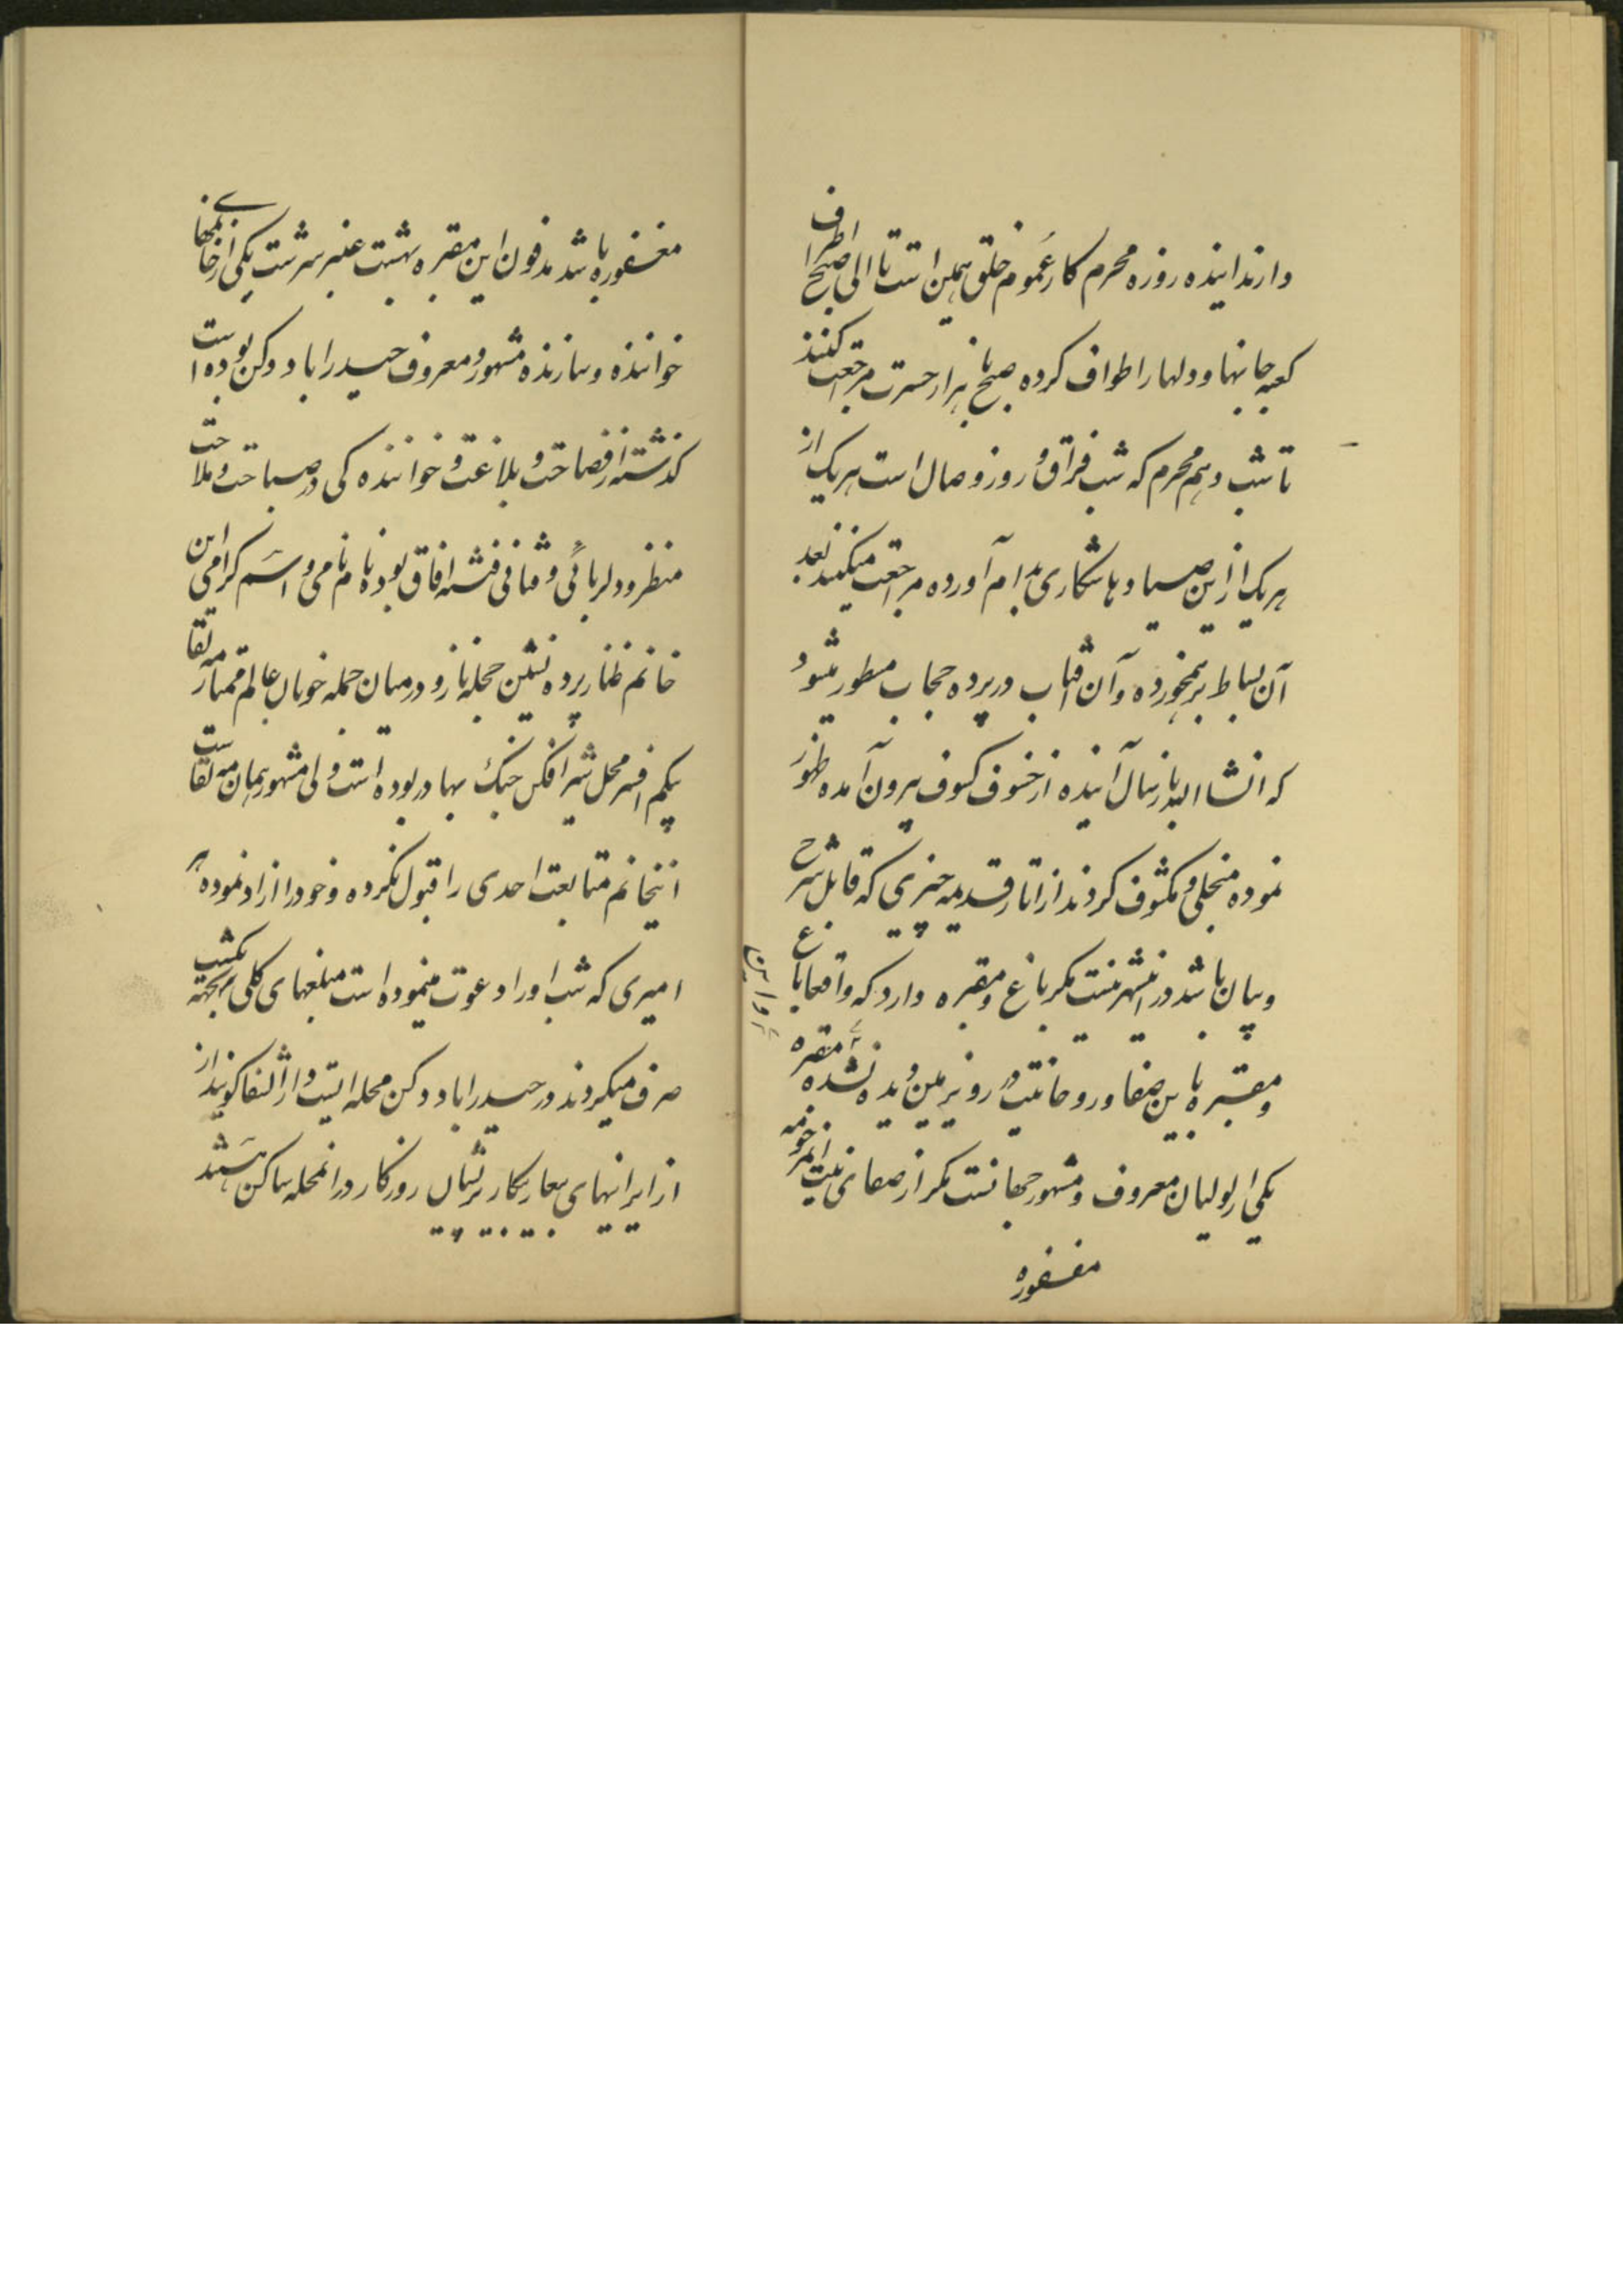 دارند اینده روزه محرم کار عموم خلق همین است تا الی صبح اطراف
کعبه جانها و دلها را طواف کرده صبح با هزار حسرت مراجعت کنند
تا شب دهم محرم که شب فراق و روز وصال است هر یک از
هر یک از این صیادها شکاری بدام آورده مراجعت میکنند بعد
آن بساط برهمخورده و آن افتاب در پرده حجاب مطور میشود
که انشاالله باز سال آینده از خسوف کسوف بیرون آمده ظهور
نموده منجلی و مکشوف کردند از اثار قدیمه چیزی که قابل شرح
و بیان باشد در اینشهر نیست مکر باغ و مقبره دارد که واقعا باغ
و مقبره باین صفا و روحانیت در روی زمین دیده نشده مقبره
یکی از لولیان معروف و مشهور جهانست مکر از صفای نیت مرحومه
مغفوره
مغفوره باشد مدفون این مقبره بهشت عنبر سرشت یکی از خانمهای
خواننده و سازنده مشهور و معروف حیدراباد دکن بوده است
کذشته از فصاحت و بلاغت و خوانندکی در صباحت و ملاحت
منظر و دلربائی و فتانی فتنه افاق بوده نام نامی و اسم کرامی این
خانم طناز پرده نشین حجله ناز و در میان جمله خوبان عالم ممتاز مه لقا
بیکم افسر محل شیر افکن جنک بهادر بوده است ولی مشهور بهمان مه لقاست
اینخانم متابعت احدی را قبول نکرده و خود را ازاد نموده هر
امیری که شب او را دعوت مینموده است مبلغهای کلی بجهته یکشب
صرف میکردند در حیدراباد دکن محله ایست و انرا النفا کویند از
از ایرانیهای بیعار بیکار پریشان روزکار در انمحله ساکن هستند